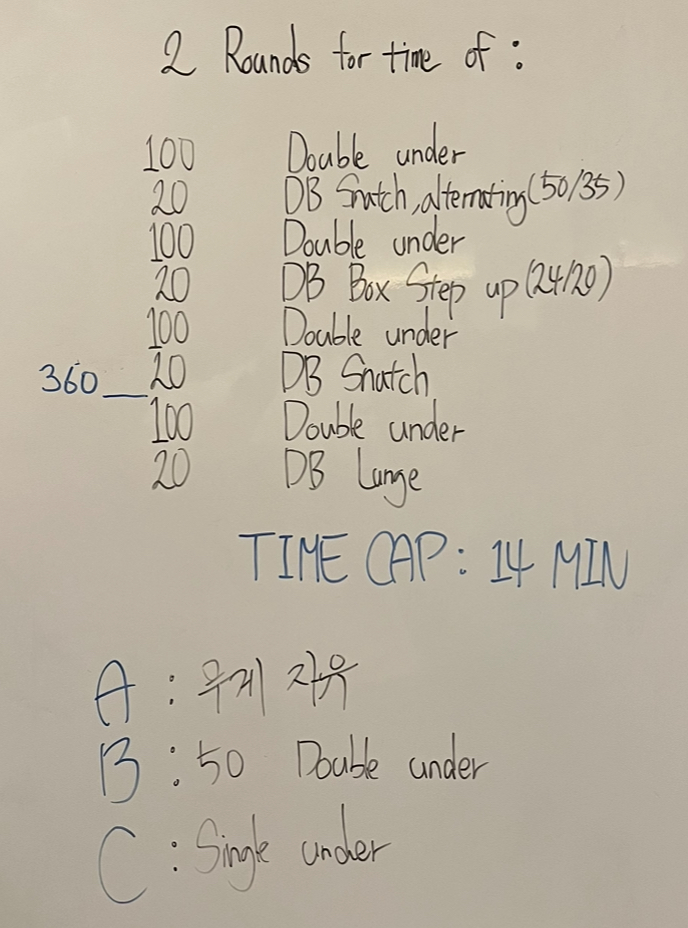 2 Rounds for time of :
100 Double under
20 DB Snatch, alternating (50/35)
100 Double under
20 DB Box Step up (24/20)
100 Double under
360 20 DB Snatch
100 Double under
20 DB Lunge
TIME CAP : 14 MIN
A : 무게 자유
B : 50 Double under
C : Single under